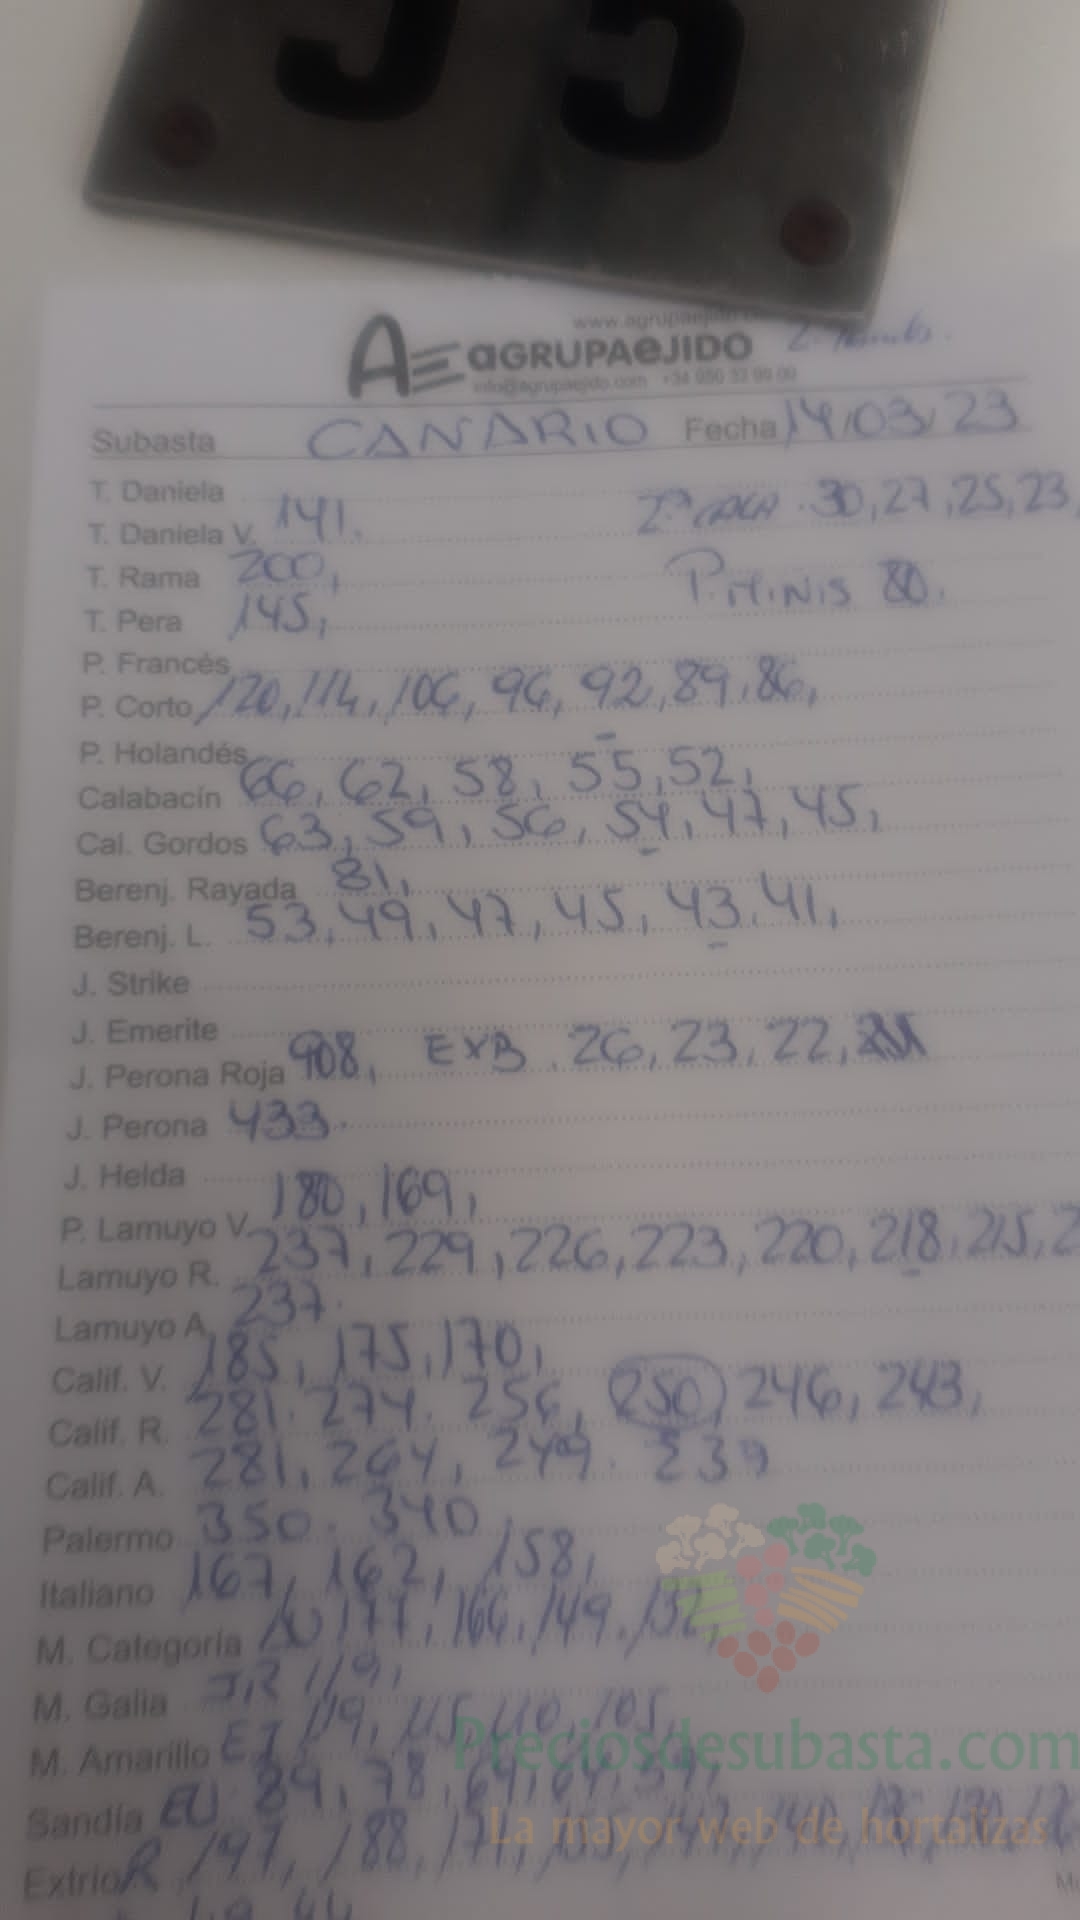 55
www.agrupaejido
AGRUPAEJIDO
info@agrupaejido.com +34 950 33 99 00
Subasta CANARIO Fecha 14/03/23
T. Daniela
T. Daniela V. 141, 2ª 30, 27, 25, 23,
T. Rama 200,
T. Pera 145, P. MINIS 80.
P. Francés
P. Corto 120, 114, 106, 96, 92, 89, 86,
P. Holandés
Calabacín 66, 62, 58, 55, 52,
Cal. Gordos 63, 59, 56, 54, 47, 45,
Berenj. Rayada 81,
Berenj. L. 53, 49, 47, 45, 43, 41,
J. Strike
J. Emerite
J. Perona Roja 908, EXB. 26, 23, 22,
J. Perona 433.
J. Helda
P. Lamuyo V. 180, 169,
Lamuyo R. 237, 229, 226, 223, 220, 218, 215, 2
Lamuyo A. 237.
Calif. V. 185, 175, 170,
Calif. R. 281. 274. 256, 250, 246, 243,
Calif. A. 281, 264, 249. 239
Palermo 350. 340
Italiano 167, 162, 158,
M. Categoría 177, 166, 149, 132,
M. Galia 119,
M. Amarillo 119, 115, 110, 105,
Sandía EU 89, 78, 69, 64, 59,
Extrio R 197, 188,
49, 44
Preciosdesubasta.com
La mayor web de hortalizas